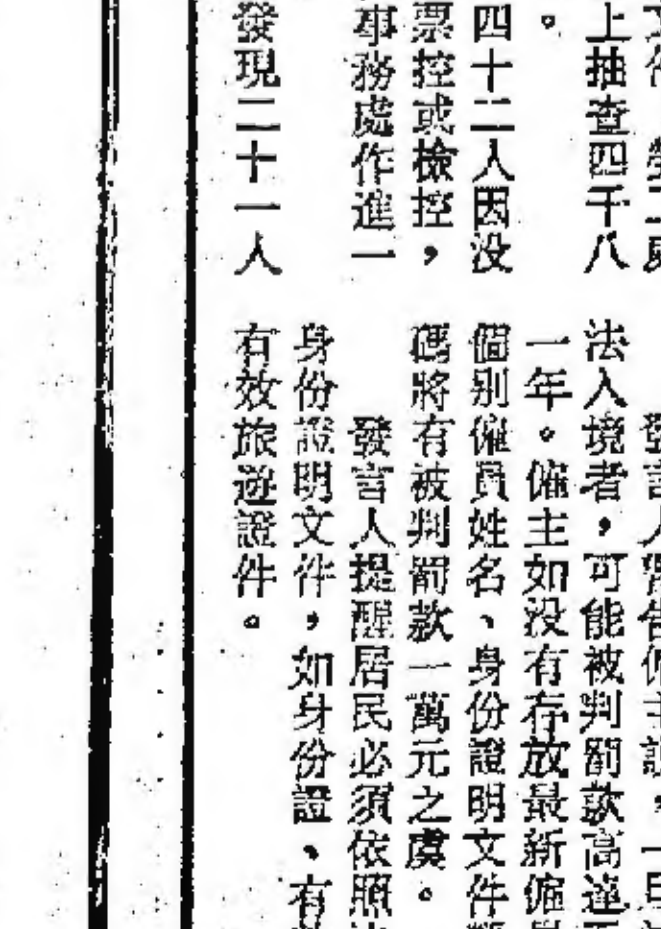 上抽查四千八
。
四十二人因没
票控或檢控，
事務處作進一
發現二十一人
發言人警告僱主說，一旦
法入境者，可能被判罰款高達
一年。僱主如没有存放最新僱
個別僱員姓名、身份證明文件
碼將有被判罰款一萬元之虞。
發言人提醒居民必須依照
身份證明文件，如身份證、有
有效旅遊證件。